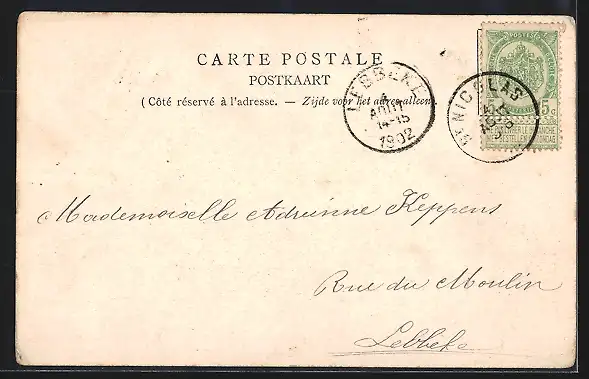 CARTE POSTALE
POSTKAART
(Côté réservé à l'adresse. — Zijde voor het adres alleen.)
LEBBEKE
4
AOUT
14-15
1902
ST NICOLAS
POSTES
5 c
Mademoiselle Adrienne Keppens
Rue du Moulin
Lebbeke